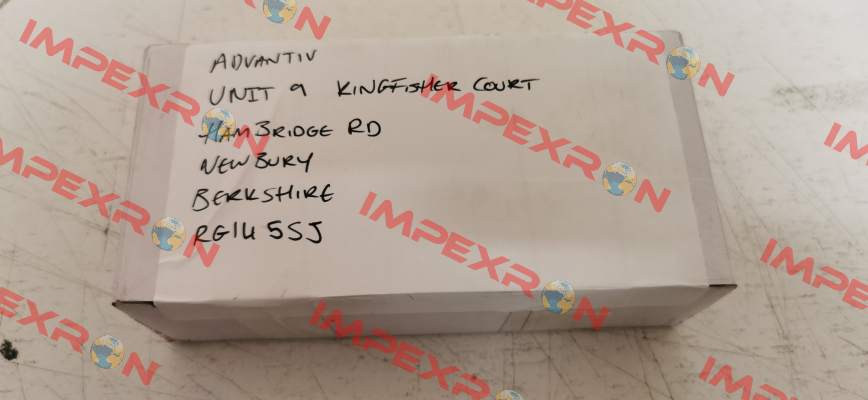 ADVANTIV
UNIT 9 KINGFISHER COURT
HAMBRIDGE RD
NEWBURY
BERKSHIRE
RG14 5SJ
IMPEXRON
IMPEXRON
IMPEXRON
IMPEXRON
IMPEXRON
IMPEXRON
IMPEXRON